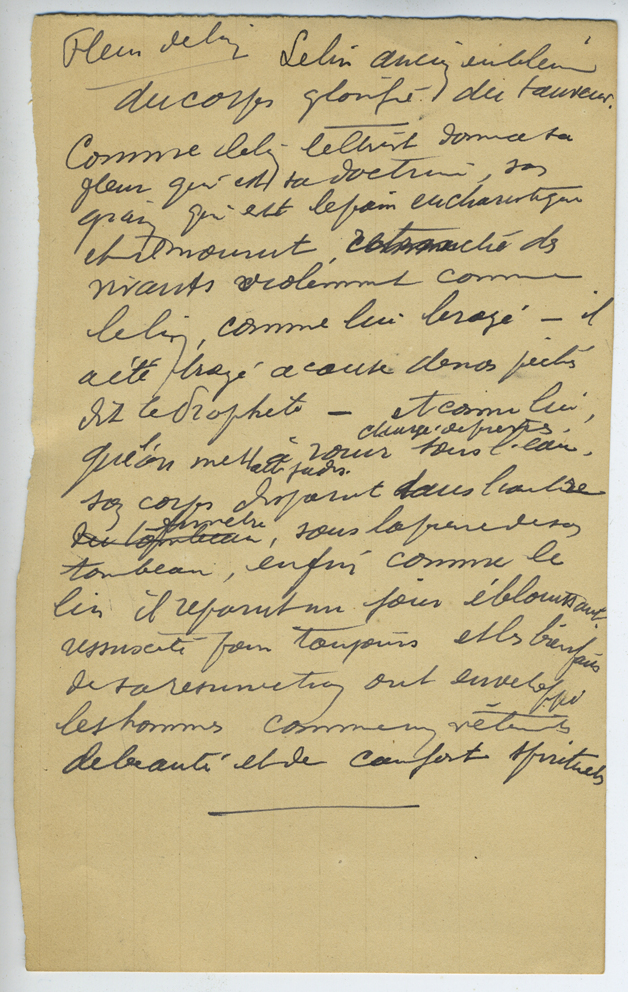 Fleur de lin Le lin ancien emblème
du corps glorifié du Sauveur.
Comme le lin le Christ donna sa
fleur qui est sa doctrine, son
grain qui est le pain eucharistique
et il mourut, retranché des
vivants violemment comme
le lin, comme lui broyé — il
a été broyé à cause de nos péchés
dit le Prophète — et comme lui,
chargé de pierres
qu'on met à rouir sous l'eau,
son corps disparut dans l'ombre
du tombeau, sous la pierre de son
tombeau, enfin comme le
lin il reparut un jour éblouissant
ressuscité pour toujours et les bienfaits
de sa résurrection ont enveloppé
les hommes comme un vêtement
de beauté et de confort spirituels